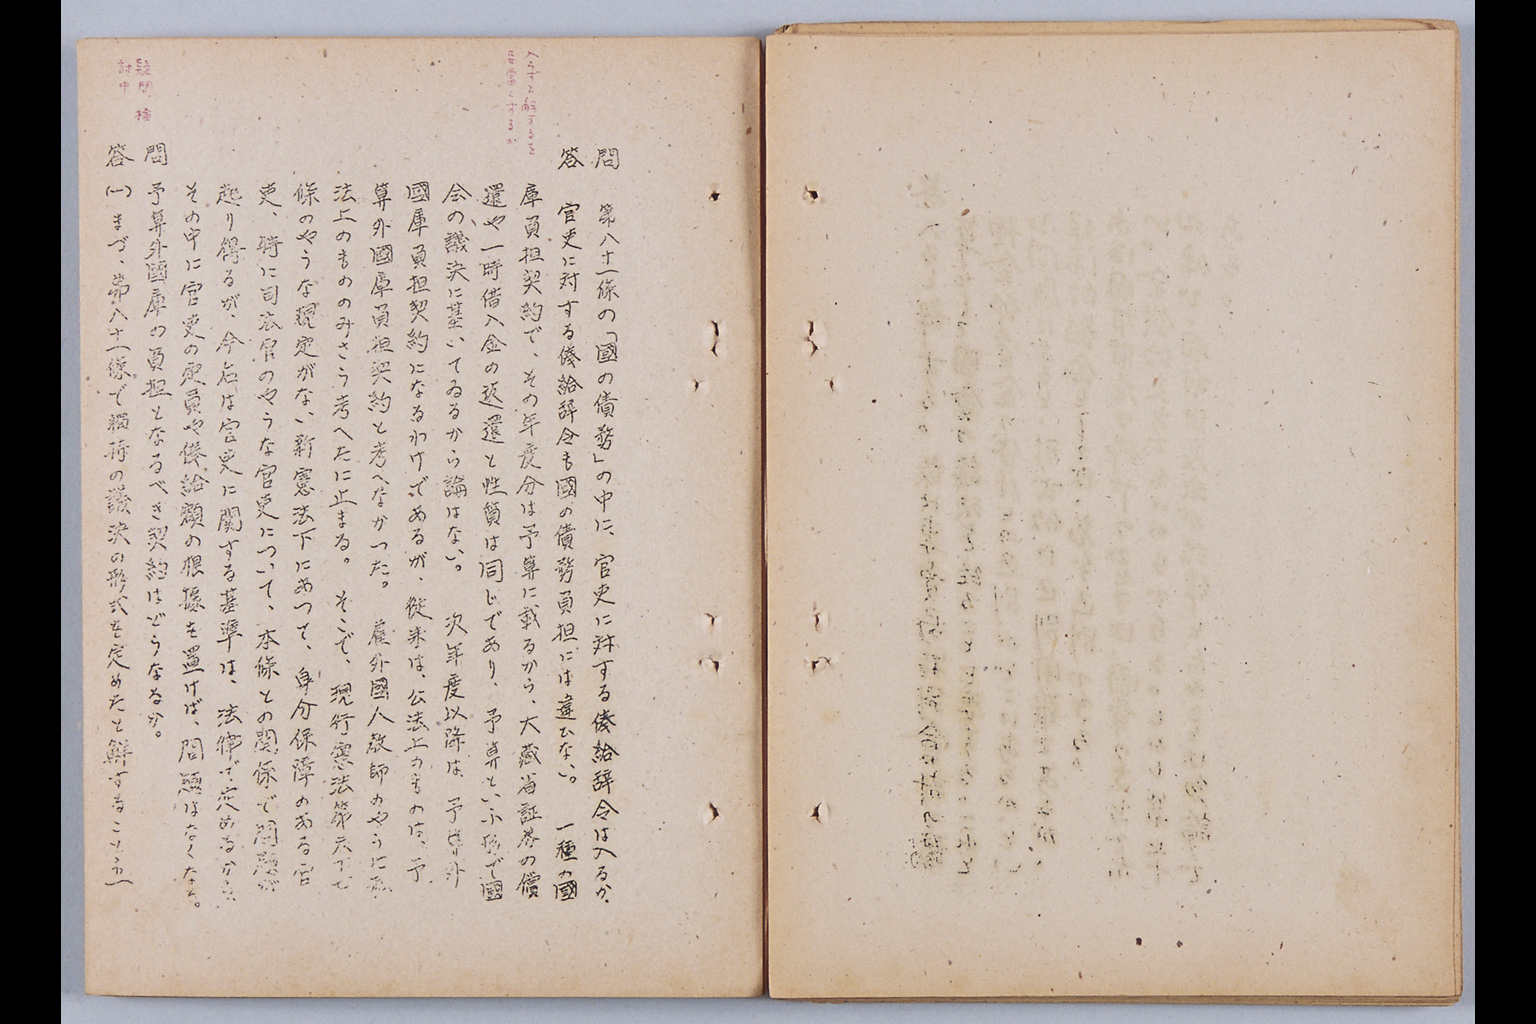 入らずと解するを
妥當とするか
問　第八十一條の「國の債務」の中に、官吏に対する俸給辞令は入るか。
答　官吏に対する俸給辞令も國の債務負担には違ひない。　一種の國
庫負担契約で、その年度分は予算に載るから、大藏省証券の償
還や一時借入金の返還と性質は同じであり、予算といふ形で國
会の議決に基いてゐるから論はない。　次年度以降は、予算外
國庫負担契約になるわけであるが、從来は、公法上のものは、予
算外國庫負担契約と考へなかつた。　雇外國人教師のやうに私
法上のもののみさう考へたに止まる。　そこで、現行憲法第六十七
條のやうな規定がない新憲法下にあつて、身分保障のある官
吏、特に司法官のやうな官吏について、本條との関係で問題が
起り得るが、今后は官吏に関する基準は、法律で定めるから、
その中に官吏の定員や俸給額の根據を置けば、問題はなくなる。
疑問、検
討中
問　予算外國庫の負担となるべき契約はどうなるか。
答　(一)まづ、第八十一條で獨特の議決の形式を定めたと解すること